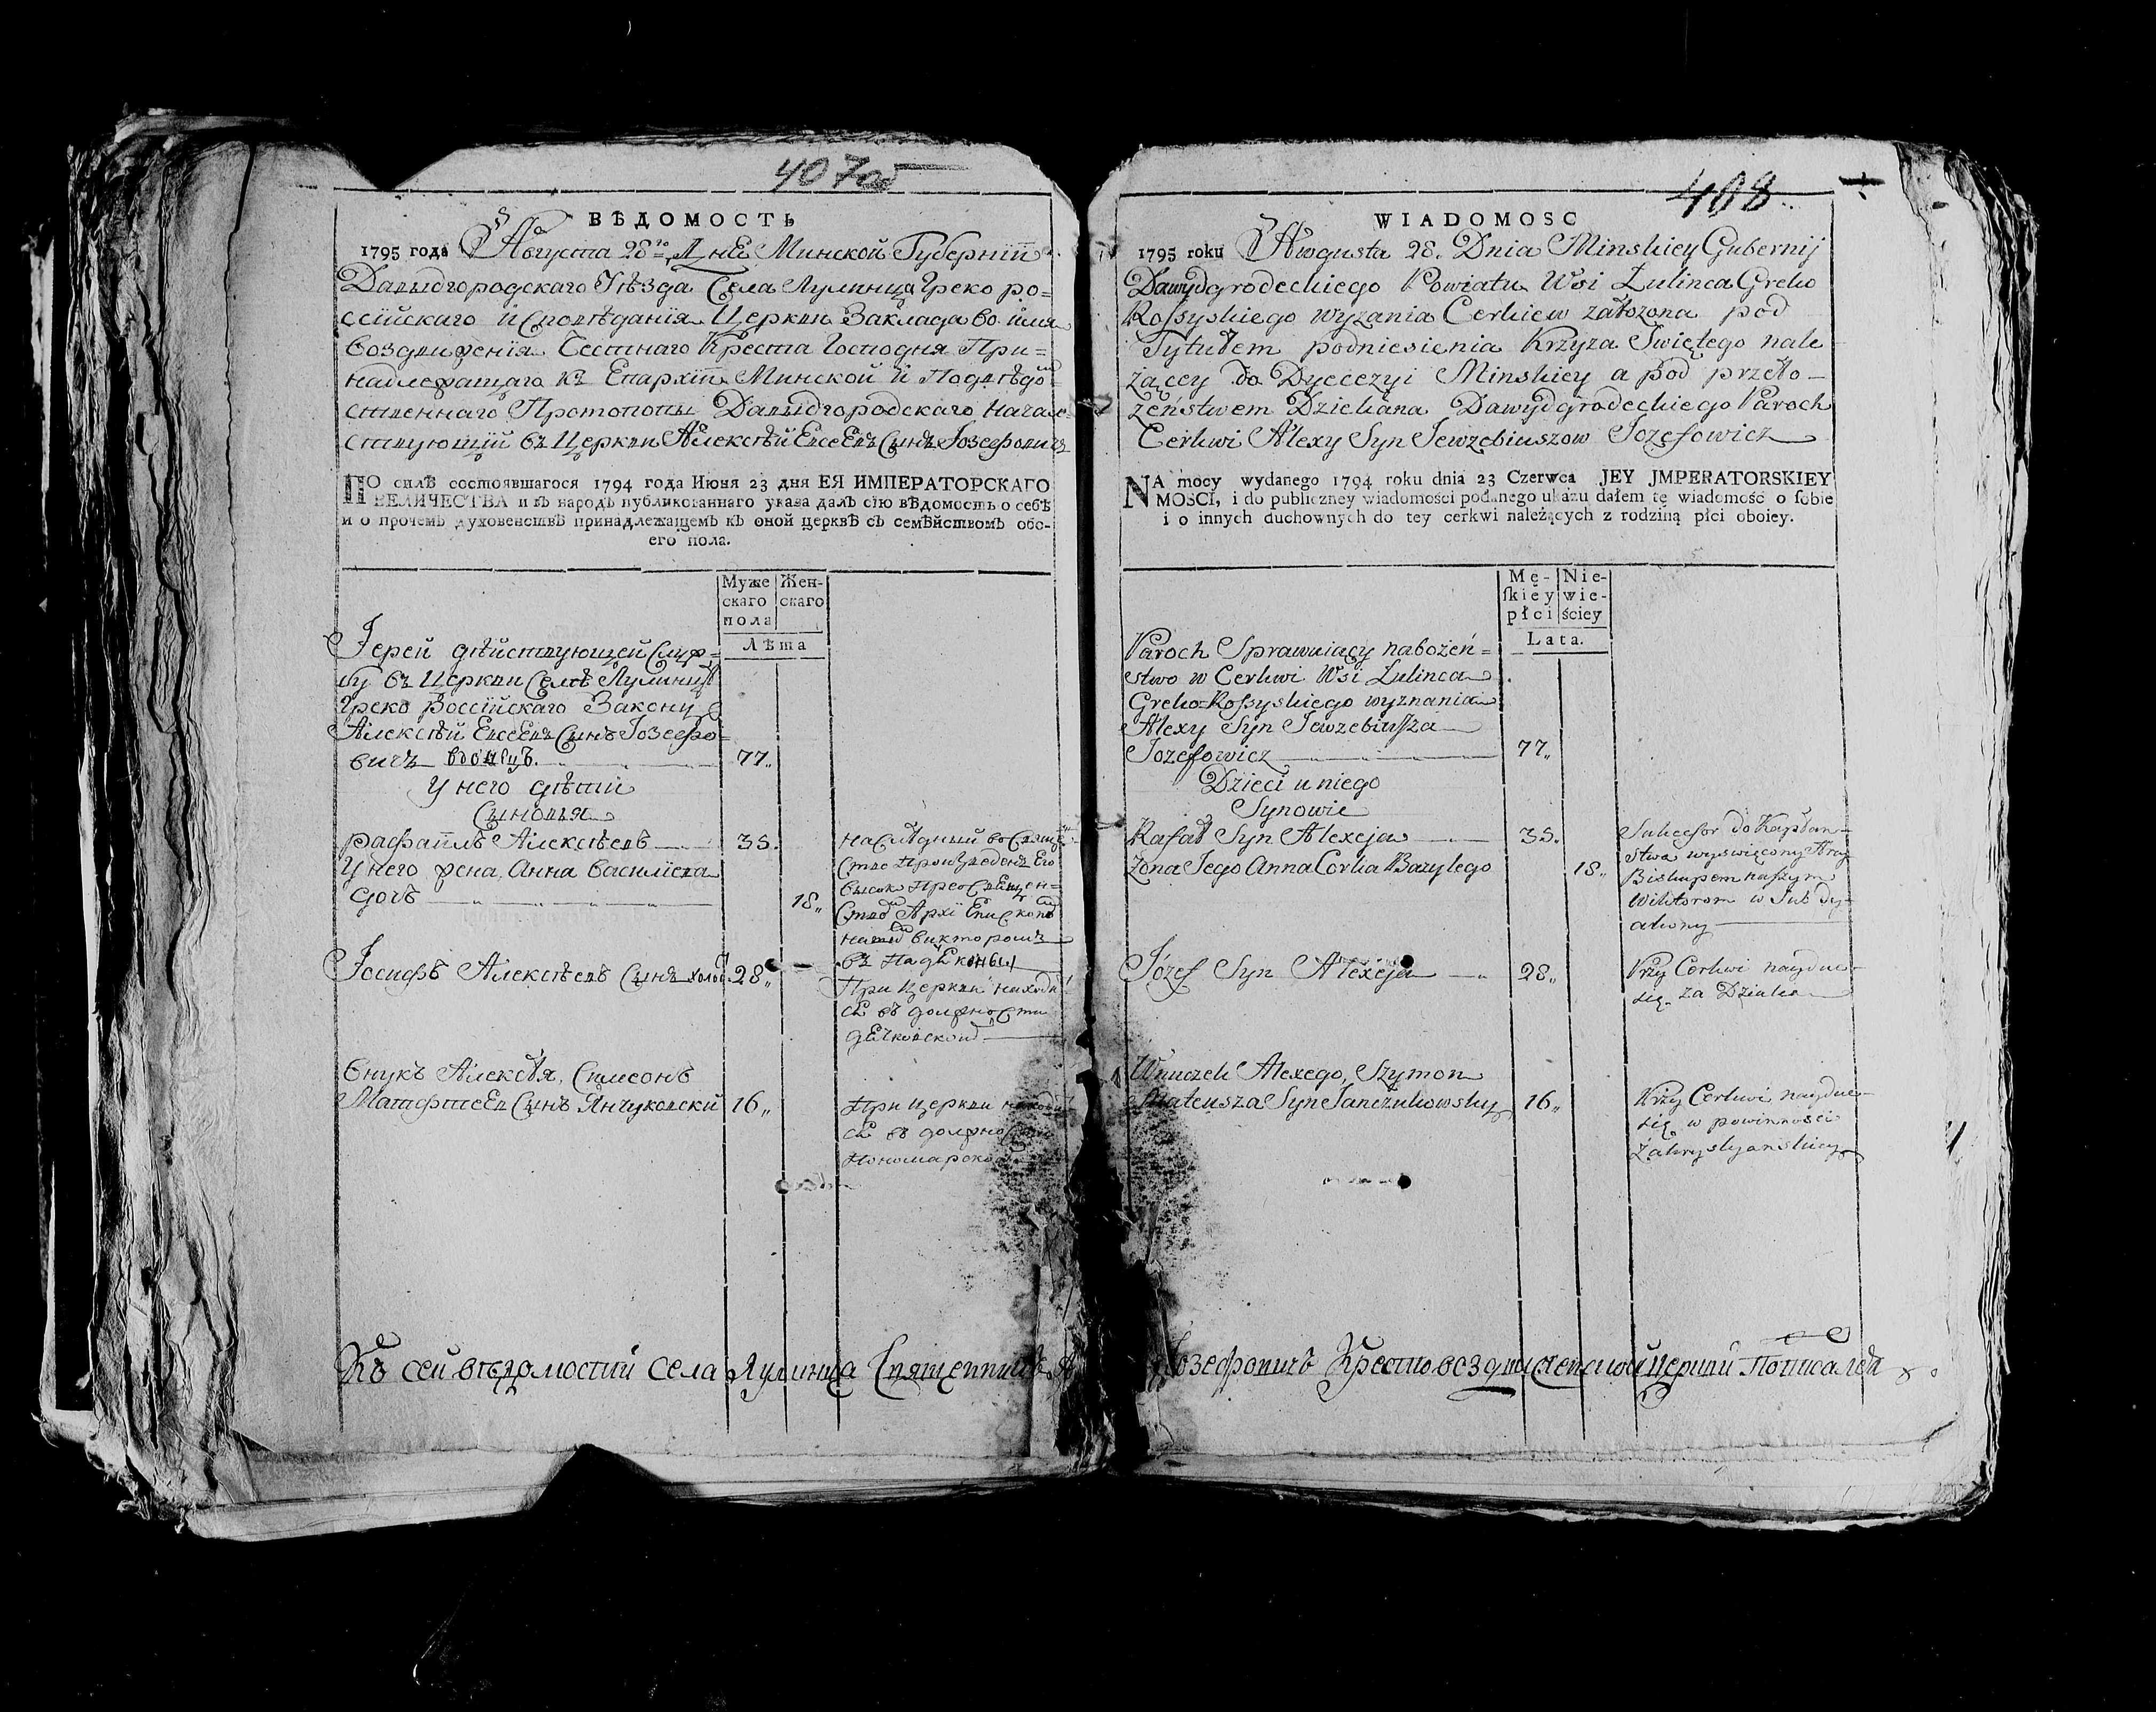 407об
ВѢДОМОСТЬ
1795 года Августа 28го Дне Минской Губернїи
Давыдгородскаго Уѣзда Села Лулинца Греко ро=
ссїйскаго Исповѣданїя Церкви Заклада во имя
Воздвиженїя Сестнаго Креста Господня При=
надлежащаго къ Епархїи Минской и Подвѣдом
ственнаго Протопопы Давыдгородскаго Начал
ствующїй въ Церкви Алексѣй Евсеевъ Сынъ Іозефовичъ
ПО силѣ состоявшагося 1794 года Июня 23 дня ЕЯ ИМПЕРАТОРСКАГО
ВЕЛИЧЕСТВА и въ народъ публикованнаго указа далъ сїю вѣдомость о себѣ
и о прочемъ духовенствѣ принадлежащемъ къ оной церквѣ съ семѣйствомъ обо-
его пола.
Муже Жен-
скаго скаго
пола
Лѣта
Іерей дѣйствующей Служ=
бу въ Церкви Селѣ Лулинцѣ
Греко Россїйскаго Закону
Алексѣй Евсеевъ Сынъ Іозефо=
вичъ вдовецъ. 77„
У него дѣти
Сыновья
Рафаилъ Алексѣевъ 35. наслѣдный во Свящ
У него жена, Анна Василїева ство Произведенъ Его
дочь 18„ высок Преосвящен=
ством Архї Епископом
нашим Викторомъ
въ Падякокны
Іосифъ Алексѣевъ Сынъ холос 28„ При Церкви находи
ся въ должности
дячковской
Внукъ Алексѣя, Симеонъ
Матфтеев Сынъ Янчуковски 16„ При церкви находи
ся въ должности
Пономарской
Къ сей вѣдомостий села Лулинца Священникъ А
408
WIADOMOSC
1795 roku Awgusta 28. Dnia Minskiey Gubernij
Dawydgrodeckiego Powiatu Wsi Łulinca Greko
Rossyskiego wyzania Cerkiew załozona pod
Tytułem podniesienia Krzyza Swiętego nale
żącey do Dyecezyi Minskiey a pod przeło-
żeństwem Dziekana Dawydgrodeckiego Paroch
Cerkwi Alexy Syn Jewzebiuszow Jozefowicz
NA mocy wydanego 1794 roku dnia 23 Czerwca JEY JMPERATORSKIEY
MOSCI, i do publiczney wiadomości podanego ukazu dałem tę wiadomość o sobie
i o innych duchownych do tey cerkwi należących z rodziną płci oboiey.
Mę- Nie-
skiey wie-
płci ściey
Lata.
Paroch Sprawuiący nabożeń=
stwo w Cerkwi Wsi Łulinca
Greko=Rossyskiego wyznania
Alexy Syn Jewzebiusza
Jozefowicz 77„
Dzieci u niego
Synowie
Rafał Syn Alexeja 35. Sukcesor do Kapłan-
Żona Jego Anna Corka Bazylego 18„ stwa wyswięcony Arcy
Biskupem naszym
Wiktorom w Sub Dy-
akony
Józef Syn Alexeja 28„ Przy Cerkwi nayduie
się za Dziaka
Wnuczek Alexego, Szymon
Mateusza Syn Janczukowsky 16„ Przy Cerkwi nayduie
się w powinnosci
Zakrystyanskiey
Іозефовичъ Крестовоздвиженской Церкви Потписался